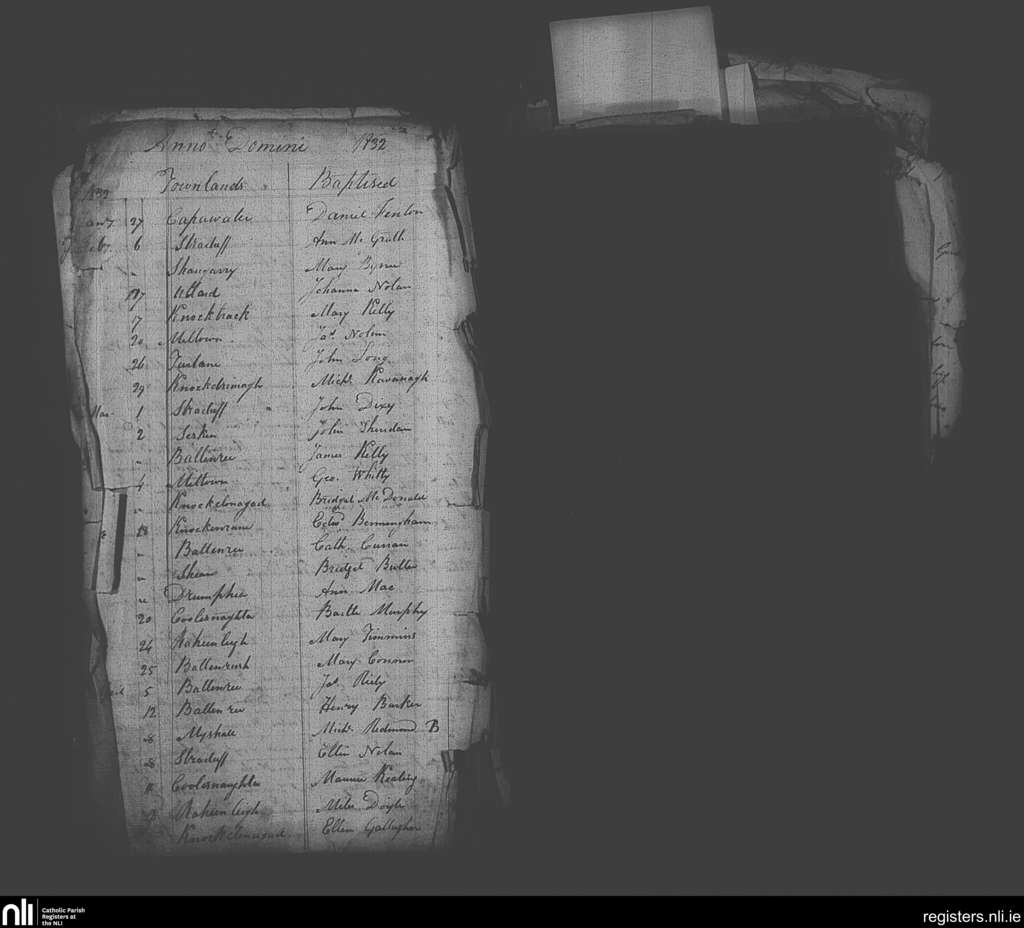 Anno Domini 1832
1832 Townlands Baptised
27 Capawater Daniel Fenlon
Feb. 6 Straduff Ann Mc Grath
" Shangarry Mary Byrne
Ullard Johanna Nolan
17 Knockbrack Mary Kelly
20 Miltown Jas. Nolan
26 John Long
29 Knockdrimagh Michl. Kavanagh
Mar. 1 Straduff John Dixy
2 Serkin John Sheridan
" Ballinree James Kelly
4 Miltown Geo. Whitty
" Knockclonagad Bridget Mc Donald
18 Bermingham
" Ballinree Cath. Curran
" Skean Bridget Butler
" Drumphea Ann Mac
20 Coolasnaghta Murphy
24 Raheenleigh Mary Timmins
25 Mary Connor
5 Ballinree Jas. Riely
12 Ballinree Henry Barker
Myshall Michl. Redmond B
Straduff Ellin Nolan
Coolasnaughta Keating
Raheenleigh Miles Doyle
Knockclonagad Ellen Gallagher
nli Catholic Parish
Registers at
the NLI
registers.nli.ie